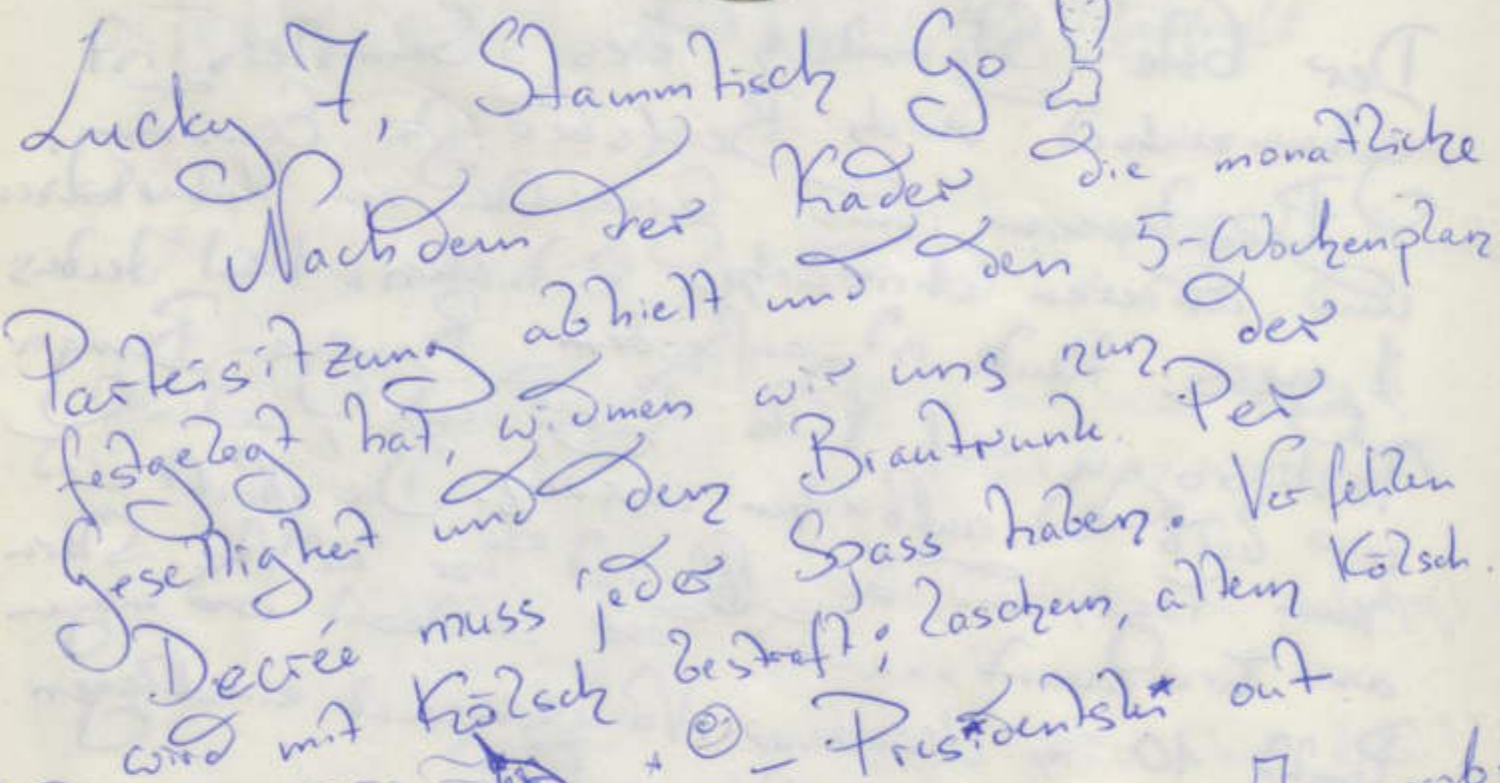 Lucky 7, Stammtisch Go!
Nachdem der Kader die monatliche
Parteisitzung abhielt und den 5-Wochenplan
festgelegt hat, widmen wir uns nun der
Geselligkeit und dem Brautrunk. Per
Decrée muss jeder Spass haben. Verfehlen
wird mit Kölsch bestraft; laschem, altem Kölsch.
– Presidentski out